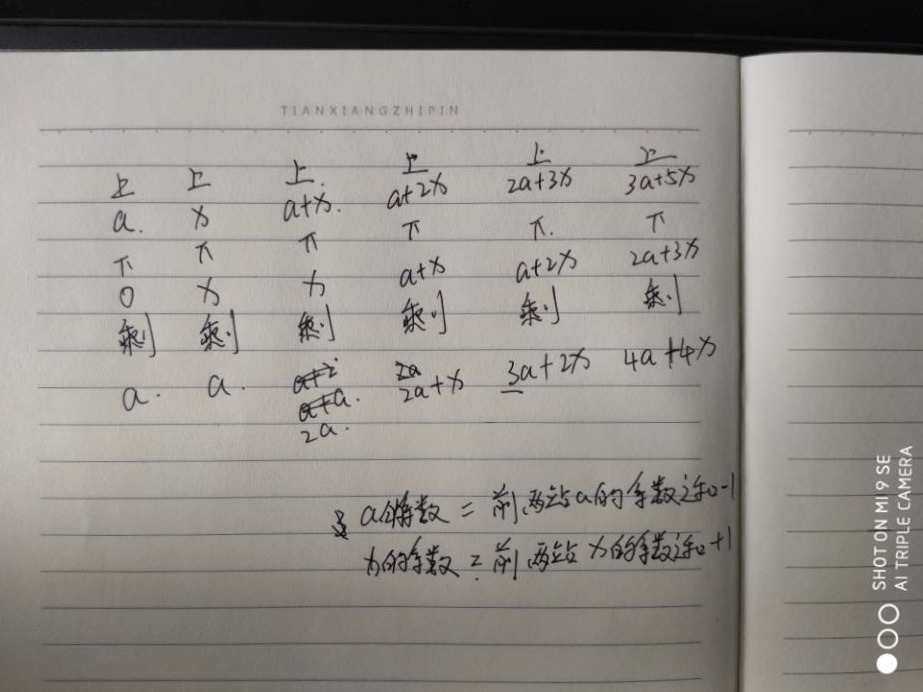 TIANXIANGZHIPIN
上 上 上. 上 上 上
a. x a+x. a+2x 2a+3x 3a+5x
下 下 下 下 下. 下
0 x x a+x a+2x 2a+3x
剩 剩 剩 剩 剩 剩
a. a. 2a 2a+x 3a+2x 4a+4x
2a.
a的系数 = 前两站a的系数之和-1
x的系数 = 前两站x的系数之和+1
SHOT ON MI 9 SE
AI TRIPLE CAMERA